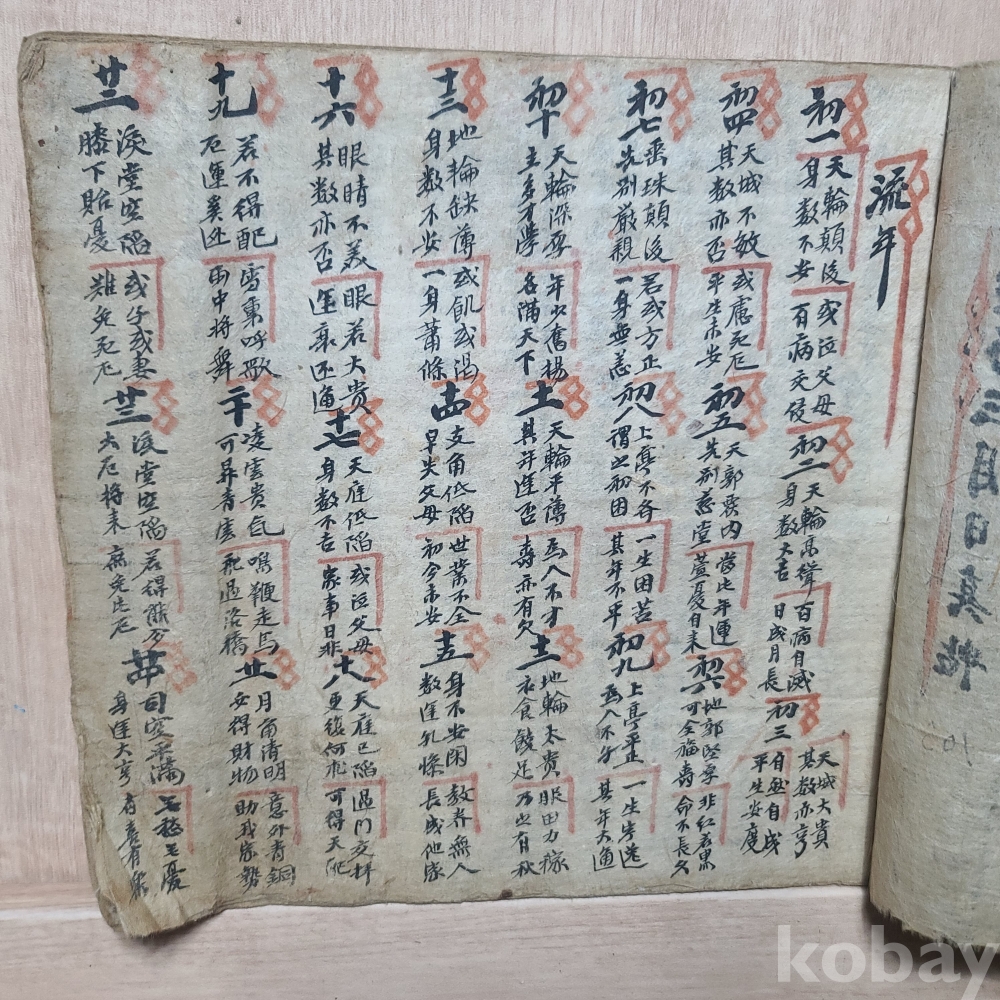 流年
初一 天輪顛後 身数不安 或泣父母 有病交侵
初二 天輪高聳 身数大吉 百病自滅 日成月長
初三 天城大貴 其数亦亨 自然自成 平生安度
初四 天城不敏 其数亦否 或慮死厄 平生未安
初五 天郭 内 先別慈堂 當此年運 萱憂自来
初六 地郭堅厚 可全福壽 非紅若黒 命不長久
初七 垂珠顛後 先別嚴親 若或方正 一身無恙
初八 上亭不各 謂之初困 一生困苦 其年不平
初九 上亭平正 爲人不 一生 其年大通
初十 天輪深厚 主多才學 年少奮揚 名滿天下
十一 天輪平薄 其 逢否 爲人不才 壽亦有欠
十二 地輪太貴 衣食饒足 服田力稼 乃亦有秋
十三 地輪缺薄 身数不安 或飢或渴 一身蕭條
十四 支角低陷 早失父母 世業不全 初今未安
十五 身不安閑 数逢 教養無人 長成他家
十六 眼睛不美 其数亦否 眼若大貴 逢 還通
十七 天庭低陷 身数不吉 或泣父母 家事日非
十八 天庭已陷 更復何 過門交拜 可得天
十九 若不得配 厄運 雪裏呼歌 雨中將舞
二十 凌雲貴氣 可昇青雲 鳴鞭走馬 死過洛橋
廿一 月角清明 安得財物 意外青銅 助我家勢
廿二 淚堂空陷 膝下貽憂 或仔或妻 難免死厄
廿三 淚堂空陷 大厄將来 若得 庶免此厄
廿四 司空平滿 身逢大亨 憂
三月日
kobay